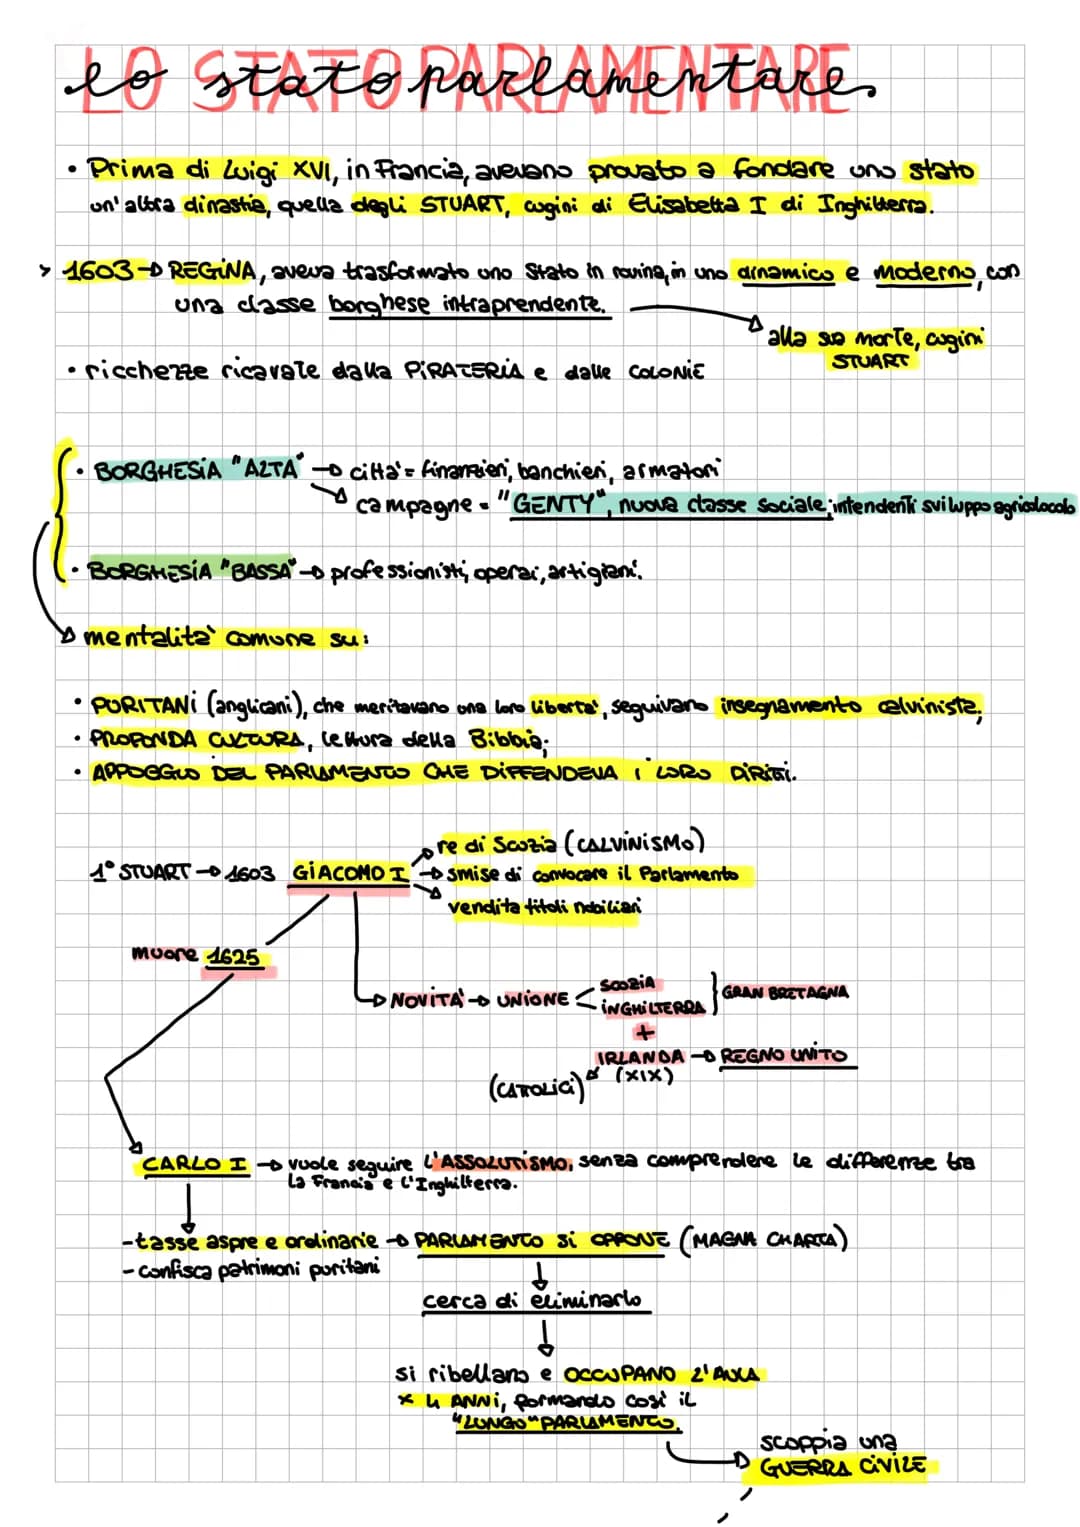 lo STATO PARLAMENTARE
• Prima di Luigi XVI, in Francia, avevano provato a fondare uno stato
un'altra dinastia, quella degli STUART, cugini di Elisabetta I di Inghilterra.
> 1603 → REGINA, aveva trasformato uno Stato in rovina, in uno dinamico e moderno, con
una classe borghese intraprendente.
alla sua morte, cugini
STUART
• ricchezze ricavate dalla PIRATERIA e dalle COLONIE
• BORGHESIA "ALTA" → città = finanzieri, banchieri, armatori
→ campagne = "GENTY", nuova classe sociale; intendenti sviluppo agricolocolo
• BORGHESIA "BASSA" → professionisti, operai, artigiani.
→ mentalità comune su:
• PURITANI (anglicani), che meritavano una loro libertà, seguivano insegnamento calviniste;
• PROFONDA CULTURA, lettura della Bibbia;
• APPOGGIO DEL PARLAMENTO CHE DIFFENDEVA I LORO DIRITTI.
→ re di Scozia (CALVINISMO)
1° STUART → 1603 GIACOMO I → smise di convocare il Parlamento
→ vendita titoli nobiliari
muore 1625
→ NOVITÀ → UNIONE < SCOZIA
INGHILTERRA } GRAN BRETAGNA
+
IRLANDA → REGNO UNITO
(CATTOLICI) (XIX)
CARLO I → vuole seguire L'ASSOLUTISMO, senza comprendere le differenze tra
la Francia e l'Inghilterra.
- tasse aspre e ordinarie → PARLAMENTO SI OPPONE (MAGNA CHARTA)
- confisca patrimoni puritani
cerca di eliminarlo
si ribellano e OCCUPANO L'AULA
x 4 ANNI, formando così il
"LUNGO" PARLAMENTO.
scoppia una
GUERRA CIVILE